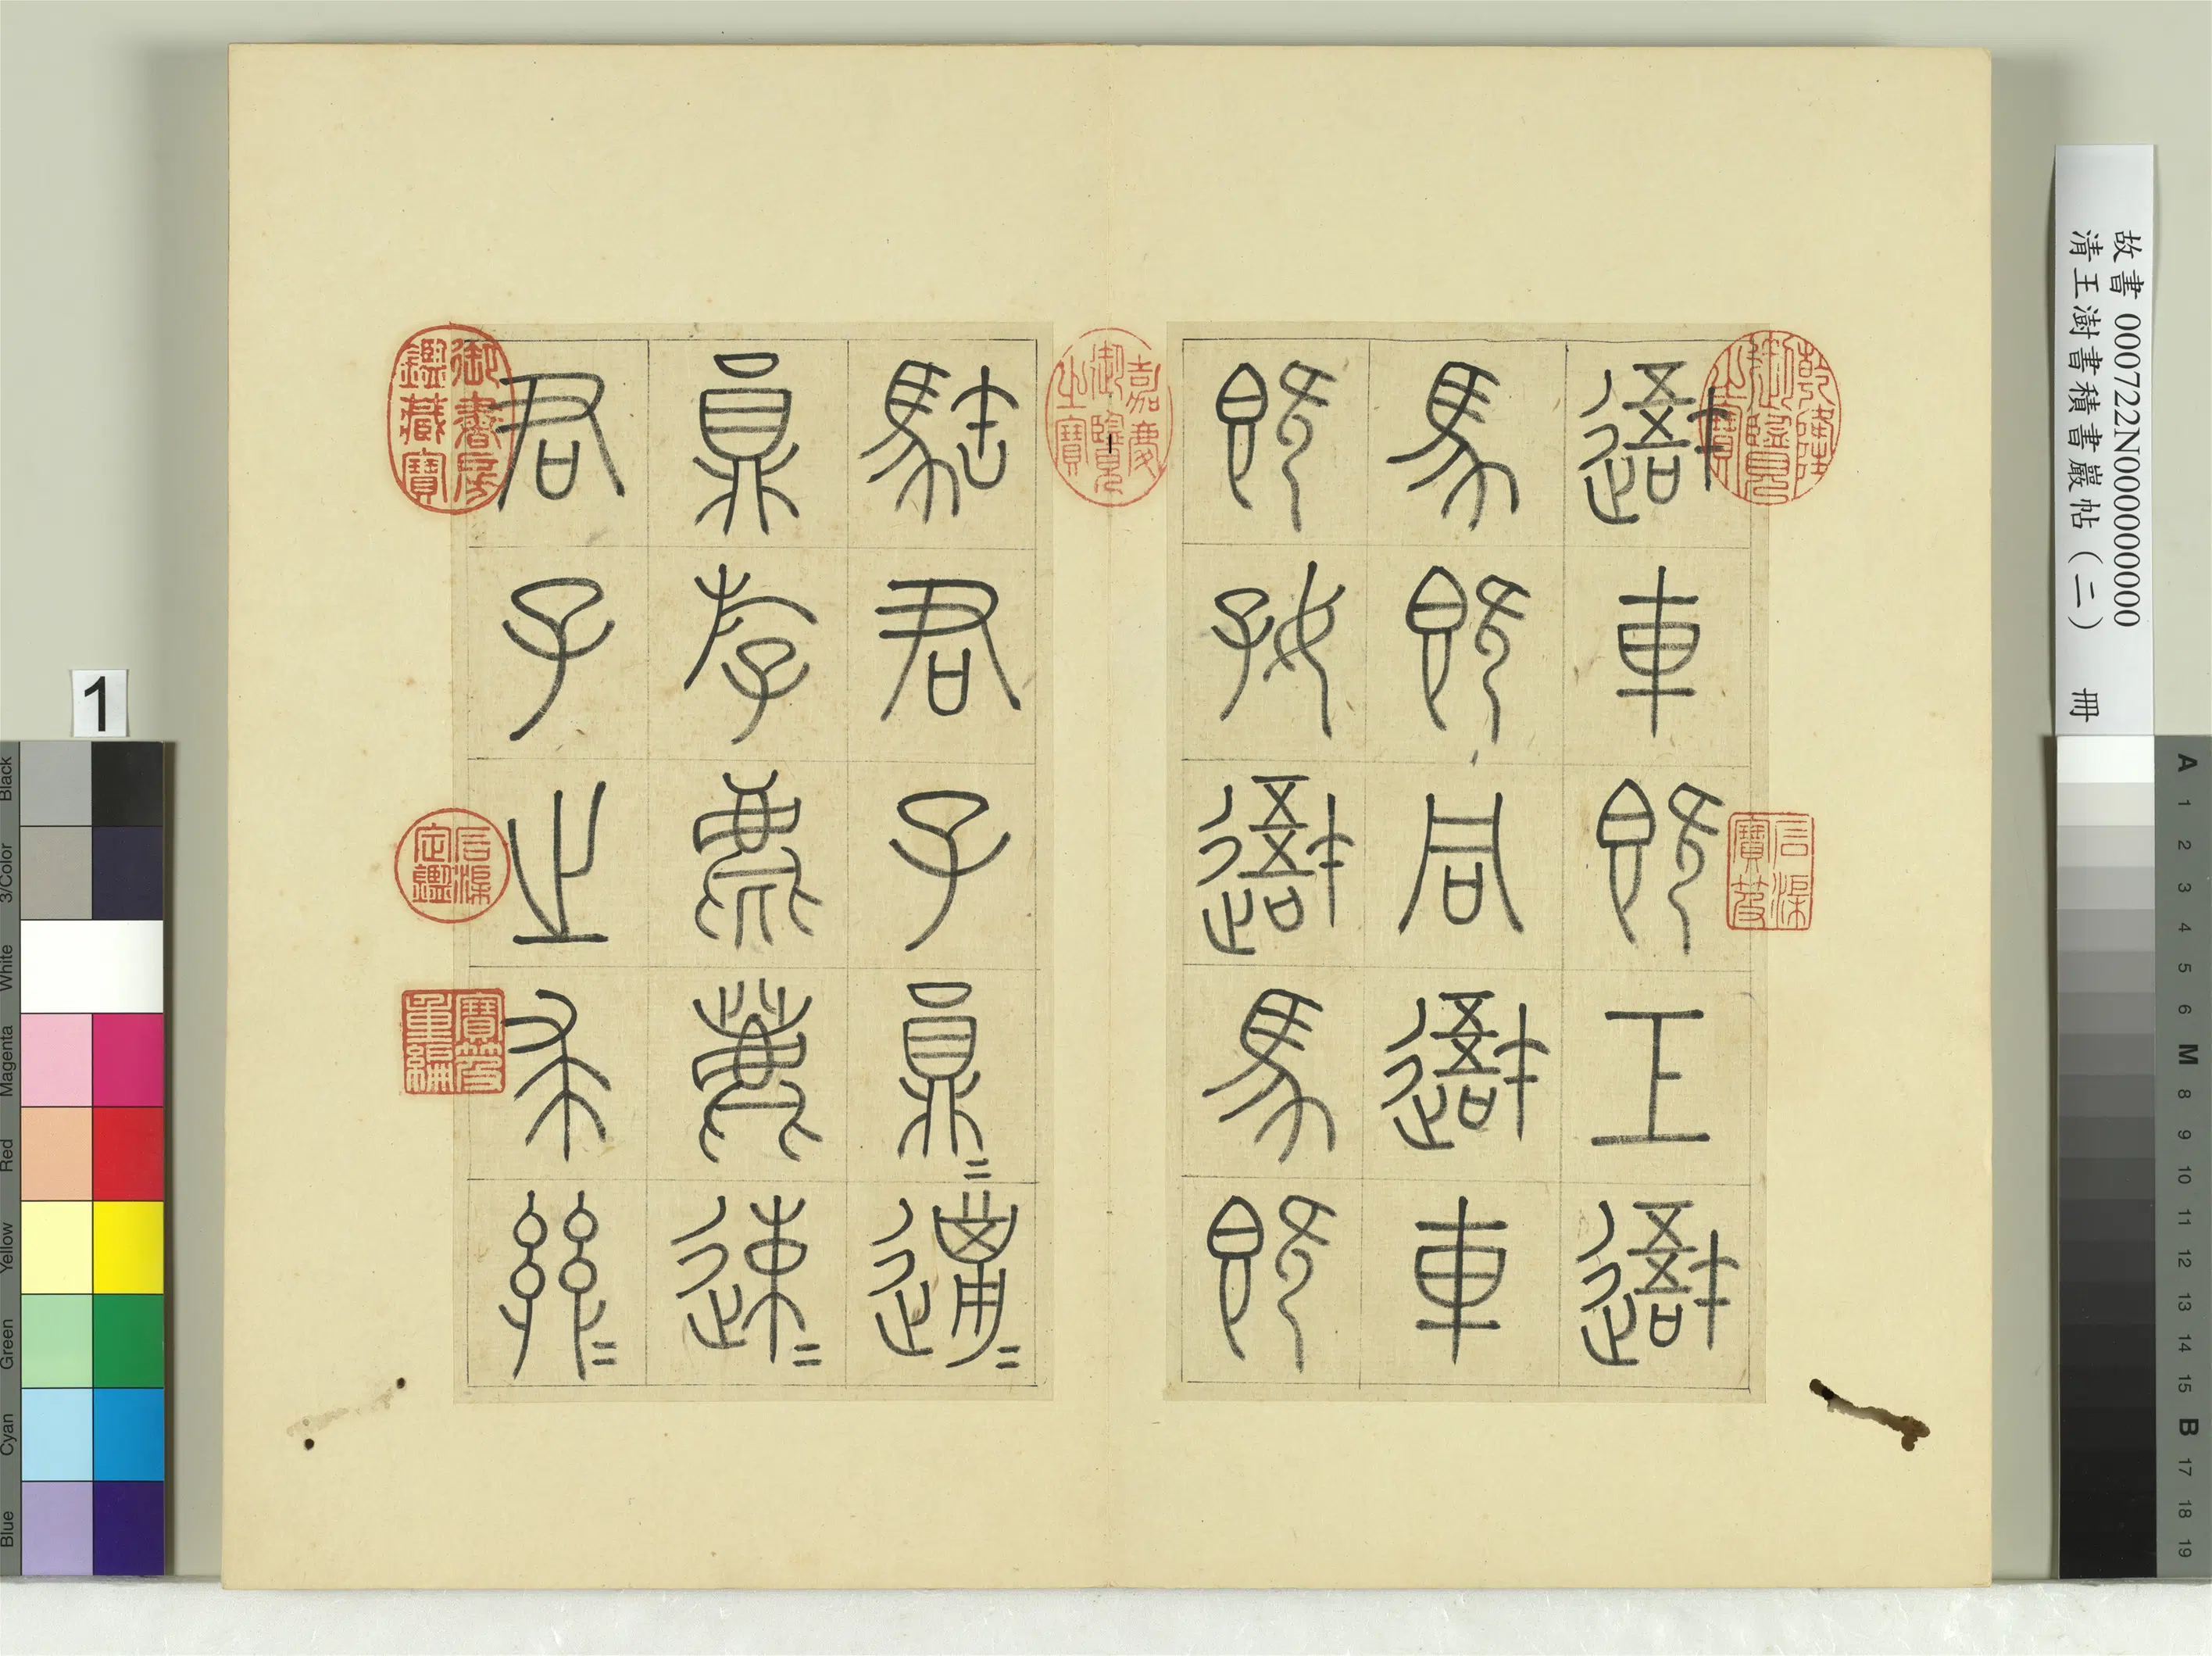 故書 000722N000000000
清王澍書積書巖帖（二） 冊
乾隆御覽之寶
石渠寶笈
吾車既工吾
馬既同吾車
既好吾馬既
嘉慶御覽之寶
君子員=邋=
員斿麀鹿速=
君子之求
御書房鑑藏寶
石渠定鑑
寶笈重編
1
Black
3/Color
White
Magenta
Red
Yellow
Green
Cyan
Blue
A
1
2
3
4
5
6
M
8
9
10
11
12
13
14
15
B
17
18
19